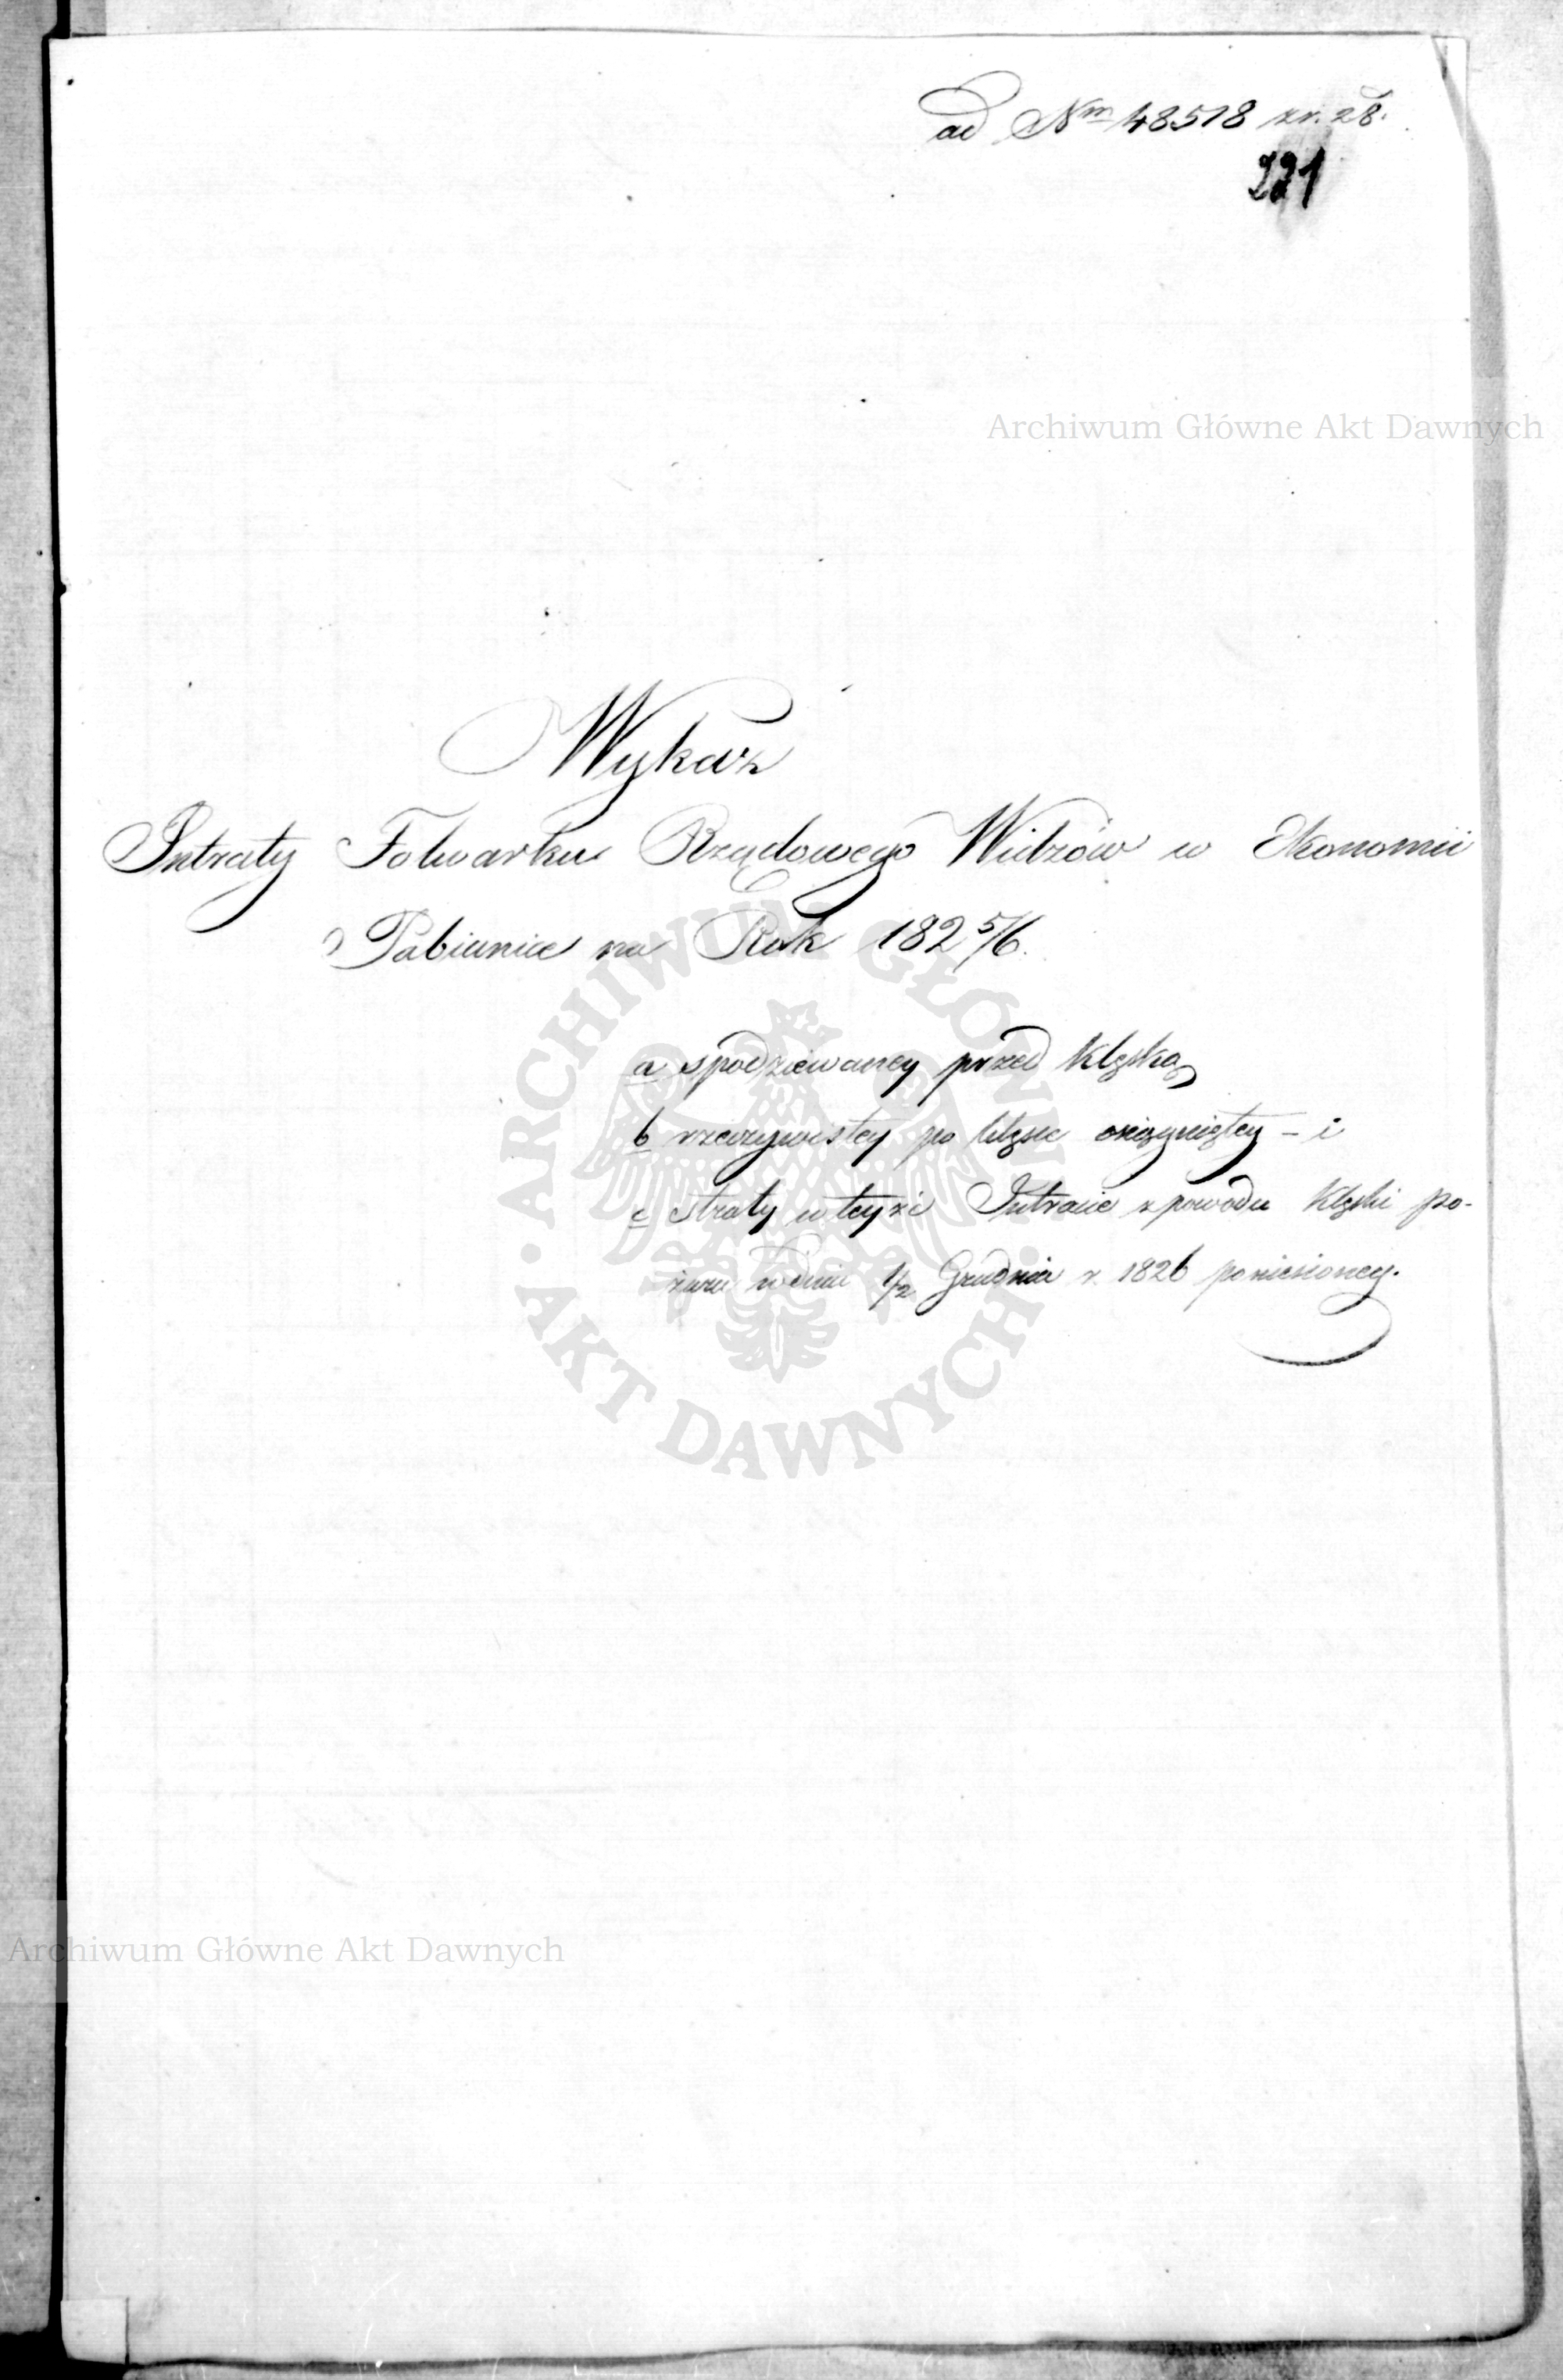 ad Nrm 48518 z r. 28.
221
Archiwum Główne Akt Dawnych
Wykaz
Intraty Folwarku Rządowego Widzów w Ekonomii
Pabianice na Rok 182 5/6.
a spodziewaney przed klęską
b rzeczywistey po klęsce osiągniętey – i
c straty w teyże Intracie z powodu klęski po-
żaru w dniu 1/2 Grudnia r. 1826 poniesioney.
ARCHIWUM GŁÓWNE • AKT DAWNYCH •
Archiwum Główne Akt Dawnych